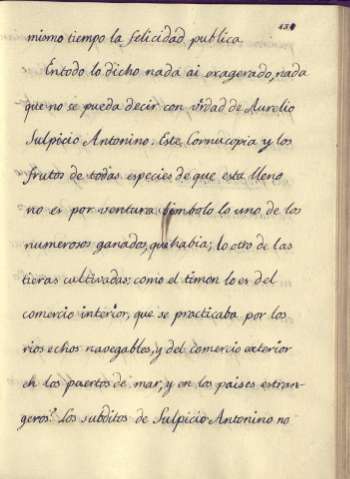 434
mismo tiempo la felicidad publica
Entodo lo dicho nada ai exagerado, nada
que no se pueda decir con vrdad de Aurelio
Sulpicio Antonino. Este Cornucopia y los
frutos de todas especies de que esta lleno
no es por ventura simbolo lo uno de los
numerosos ganados, que habia; lo otro de las
tieras cultivadas: como el timon lo es del
comercio interior, que se practicaba por los
rios echos navegables, y del comercio exterior
en los puertos de mar, y en los paises estran-
geros? Los subditos de Sulpicio Antonino no